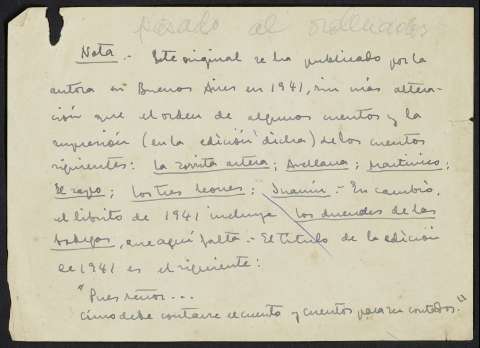 Pasado al ordenador
Nota.- Este original se ha publicado por la
autora en Buenos Aires en 1941, sin más altera-
ción que el orden de algunos cuentos y la
supresión (en la edición dicha) de los cuentos
siguientes: La zorrita artera; Avellana; Martinico;
El sapo; Los tres leones; Juanín.- En cambio,
el librito de 1941 incluye Los duendes de las
bodegas, que aquí falta.- El título de la edición
de 1941 es el siguiente:
"Pues señor...
Cómo debe contarse el cuento y cuentos para ser contados."